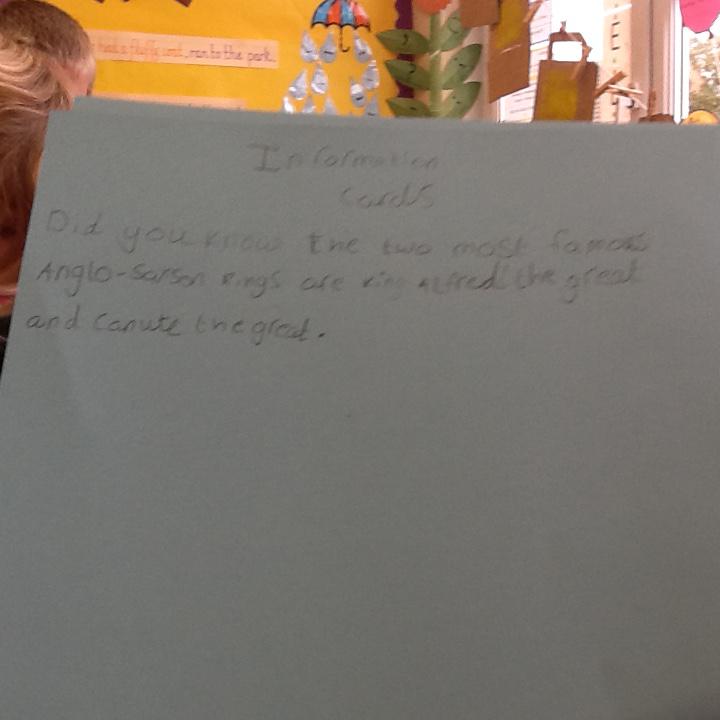 had a fluffy coat, ran to the park.
Information
Cards
Did you know the two most famous
Anglo-Sarson Kings are king Alfred the great
and Canute the great.